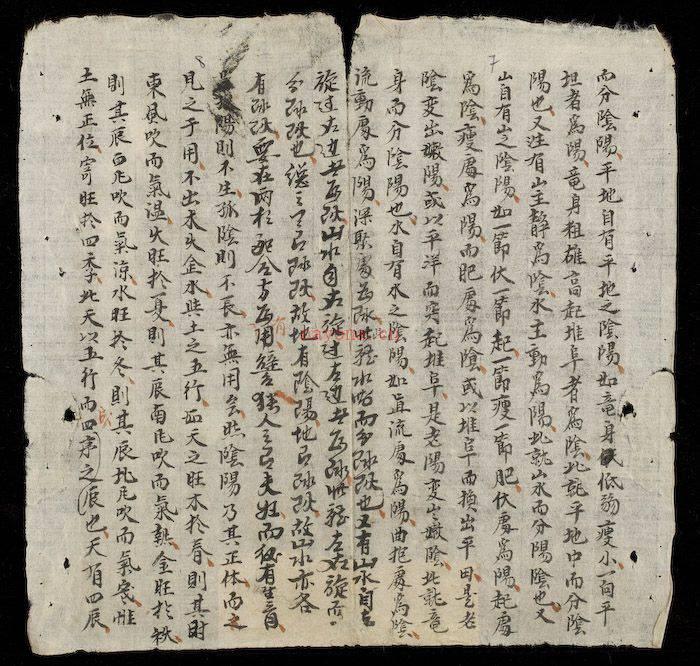 而分陰陽平地自有平地之陰陽如竜身低弱瘦小一自平
坦者為陽竜身粗雄高起堆阜者為陰此就平地中而分陰
陽也又法有山主静為陰水主動為陽此就山水而分陽陰也又
山自有山之陰陽如一節伏一節起一節瘦一節肥伏處為陽起處
為陰瘦處為陽而肥處為陰或以堆阜而換出平田是老
陰变出嫩陽或以平洋而突起堆阜是老陽变出嫩陰此就竜
身而分陰陽也水自有水之陰陽如直流處為陽曲抱處為陰
流動處為陽深聚處為 此 水 而分 也又有山水自左
旋过右边者為 山水自右旋过左边者為 此 左右旋而
分 也 之天有 故地有陰陽地有 故山水亦各
有 要在两相配合方為用譬猶人之有夫妇而後有生育
陽則不生孤陰則不長亦無用矣然陰陽乃其正体而之
見之于用不出木火金水與土之五行如天之旺木於春則其时
東風吹而氣温火旺於夏則其辰南風吹而氣熱金旺於秋
則其辰西風吹而氣凉水旺於冬則其辰北風吹而氣寒惟
土無正位寄旺於四季此天以五行而四序之辰也天有四辰